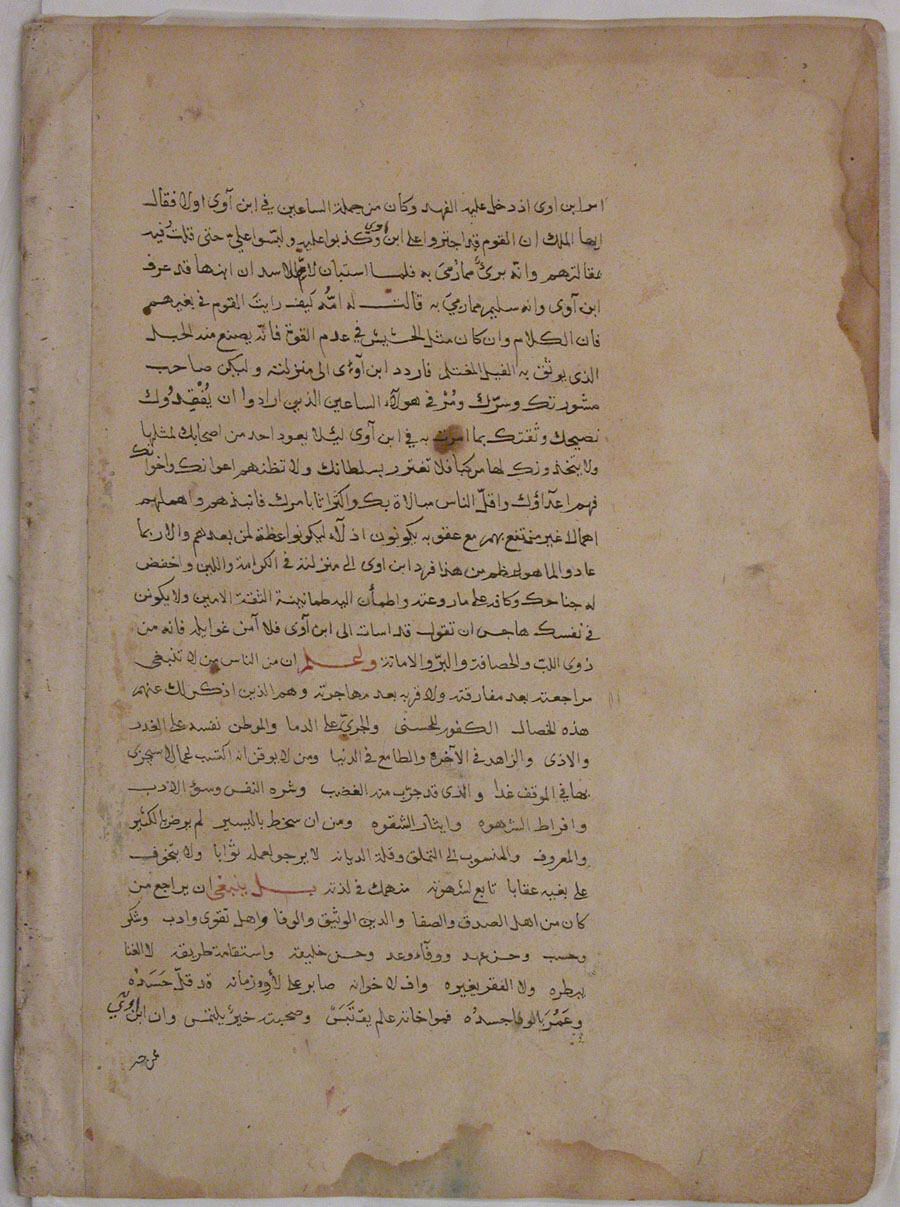 امر ابن اوى اذ دخل عليه الفهد وكان من جملة الساعين في ابن آوى اولا فقال
ايها الملك ان القوم قد اجتروا على ابن اوى وكذبوا عليه ولبسوا علىّ حتى قلت فيه
مقالتهم وانّه برئ مما رُميَ به فلما استبان لامّ الاسد ان ابنها قد عرف
ابن آوى وانه سليم مما رميَ به قالت له امّه كيف رايت القوم في بغيهم
فان الكلام وان كان مثل الحشيش في عدم القوة فانّه يصنع منه الحبل
الذى يوثق به الفيل المغتلم فاردد ابن آوى الى منزلته وليكن صاحب
مشورتك وسرّك ومُرْ في هولآء الساعين الذين ارادوا ان يُفْقِدُوك
نصيحك وثقتك بما امرت به في ابن آوى ليلا يعود احد من اصحابك لمثلها
ولا يتخذون لها مركبا فلا تغترر بسلطانك ولا تظنهم اعوانك واخوانك
فهم اعداؤك واقلّ الناس مبالاة بك واكثراثا بامرك فانبذهم واهملهم
اهمالا غير منتفع بهم مع عقوبه يكونون اذلآء ليكونوا عظة لمن بعدهم والا ربما
عادوا لما هو اعظم من هذا فرد ابن اوى الى منزلته في الكرامة واللين واخفض
له جناحك وكافه على ما روعته واطمأن اليه طمانينة الثقة الامين ولا يكونن
في نفسك هاجس ان تقول قد اسات الى ابن آوى فلا آمن غوايله فانه من
ذوى اللب والحصافة والبرّ والامانة واعلم ان من الناس من لا تنبغى
مراجعته بعد مفارقته ولا قربه بعد مهاجرته وهم الذين اذكر لك عنهم
هذه الخصال الكفور للحسنى والجرىّ على الدما والموطن نفسه على الغدر
والاذى والزاهد في الآخرة والطامع في الدنيا ومن لا يوقن انه اكتسب اعمالا سيجزى
بها في الموقف غدا والذى قد جرّب منه الغضب وشره النفس وسؤ الادب
وافراط الشهوه وايثار الشقوه ومن ان سخط باليسير لم يرض بالكثير
والمعروف والمنسوب الى التملق وقلة الديانه لا يرجو لعمله ثوابا ولا يتخوف
على بغيه عقابا تابع لشهوته منهمك في لذته بل ينبغى ان يراجع من
كان من اهل الصدق والصفا والدين الوثيق والوفا واهل تقوى وادب وشكر
وحسب وحسن عهد ووفآء وعد وحسن خليقه واستقامة طريقه لا الغنا
يبطره ولا الفقر يغيره واف لاخوانه صابر على لأواء زمانه قد قلّ حَسَدُه
وعَمُرَ بالوفا جسدُه فمواخاته علم يقتبس وصحبته خير يلتمس وان ابن اوى